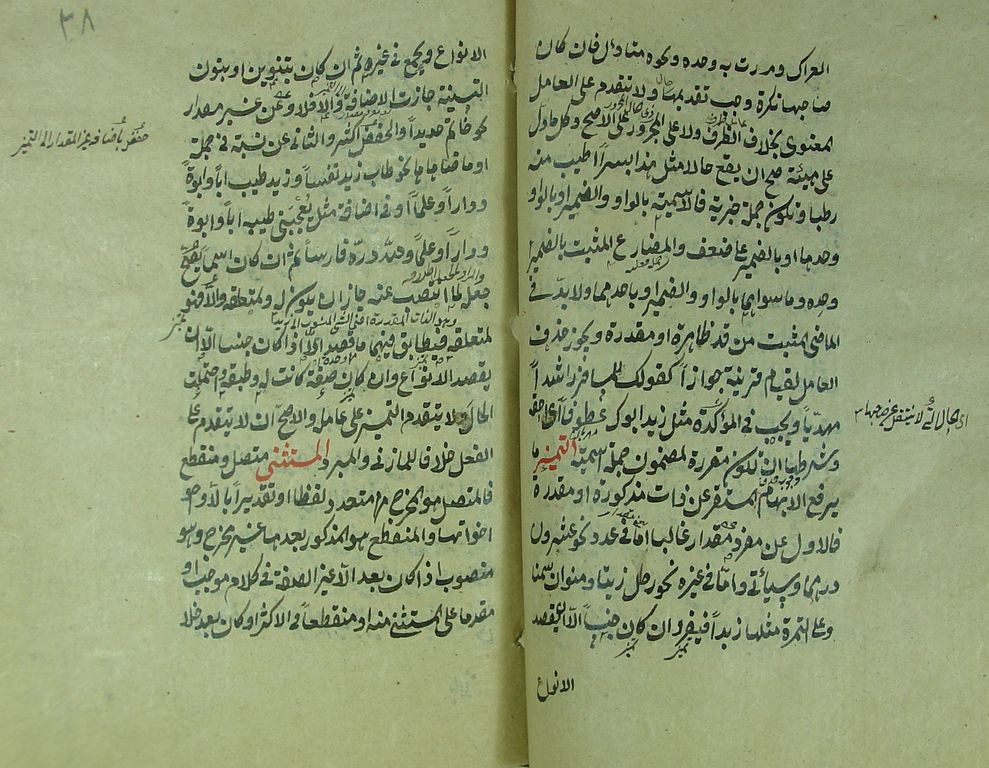 العراك ومررت به وحده ونحوه متأول فان كان
صاحبها نكرة وجب تقديمها ولا تتقدم على العامل
المعنوى بخلاف الظرف ولا على المجرور على الاصح وكل ما دل
على هيئة صح ان يقع حالا مثل هذا بسرا اطيب منه
رطبا وتكون جملة خبرية فالاسمية بالواو والضمير او بالواو
وحدها او بالضمير على ضعف والمضارع المثبت بالضمير
وحده وما سواهما بالواو والضمير او باحدهما ولا بد فى
الماضى المثبت من قد ظاهرة او مقدرة ويجوز حذف
العامل لقيام قرينة جوازا كقولك للمسافر راشدا
مهديا ويجب فى المؤكدة مثل زيد ابوك عطوفا اى احقه
وشرطها ان تكون مقررة لمضمون جملة اسمية التميز ما
يرفع الابهام المستقر عن ذات مذكورة او مقدرة
فالاول عن مفرد مقدار غالبا اما فى عدد نحو عشرون
درهما وسيأتى واما فى غيره نحو رطل زيتا ومنوان سمنا
وعلى التمرة مثلها زبدا فيفرد ان كان جنسا الا ان يقصد
الانواع
٣٨
الانواع ويجمع فى غيره ثم ان كان بتنوين او بنون
التثنية جازت الاضافة والا فلا وعن غير مقدار
نحو خاتم حديدا والخفض اكثر والثانى عن نسبة فى جملة
او ما ضاهاها نحو طاب زيد نفسا وزيد طيب ابا وابوة
ودارا وعلما او فى اضافة مثل يعجبنى طيبه ابا وابوة
ودارا وعلما ولله دره فارسا ثم ان كان اسما يصح
جعله لما انتصب عنه جاز ان يكون له ولمتعلقه والا فهو
لمتعلقه فيطابق فيهما ما قصد الا اذا كان جنسا الا ان
يقصد الانواع وان كان صفة كانت له وطبقه واحتملت
الحال ولا يتقدم التميز على عامله والاصح ان لا يتقدم على
الفعل خلافا للمازنى والمبرد المستثنى متصل ومنقطع
فالمتصل هو المخرج من متعدد لفظا او تقديرا بالا و
اخواتها والمنقطع هو المذكور بعدها غير مخرج وهو
منصوب اذا كان بعد الا غير الصفة فى كلام موجب او
مقدما على المستثنى منه او منقطعا فى الاكثر او كان بعد خلا